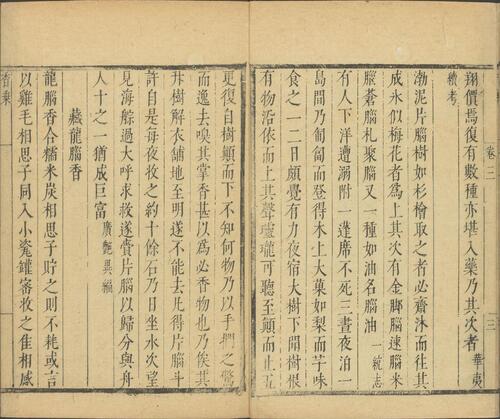 翔價焉復有數種亦堪入藥乃其次者華夷
續考
渤泥片腦樹如杉檜取之者必齋沐而往其
成氷似梅花者為上其次有金脚腦速腦米
腦蒼腦札聚腦又一種如油名腦油一統志
有人下洋遭溺附一蓬席不死三晝夜泊一
島間乃匍匐而登得木上大菓如梨而芋味
食之一二日頗覺有力夜宿大樹下聞樹根
有物沿依而上其聲瓏瓏可聽至顛而止五
更復自樹顛而下不知何物乃以手捫之驚
而逸去嗅其掌香甚以為必香物也乃俟其
升樹解衣鋪地至明遂不能去凡得片腦斗
許自是每夜收之約十餘石乃日坐水次望
見海䑸過大呼求救遂賫片腦以歸分與舟
人十之一猶成巨富廣艷異編
藏龍腦香
龍腦香合糯米炭相思子貯之則不耗或言
以雞毛相思子同入小瓷罐密收之佳相感
卷三
三
香乘